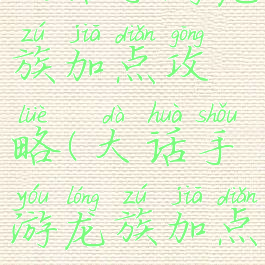 zú jiā diǎn gōng
族加点攻
lüè dà huà shǒu
略(大话手
yóu lóng zú jiā diǎn
游龙族加点